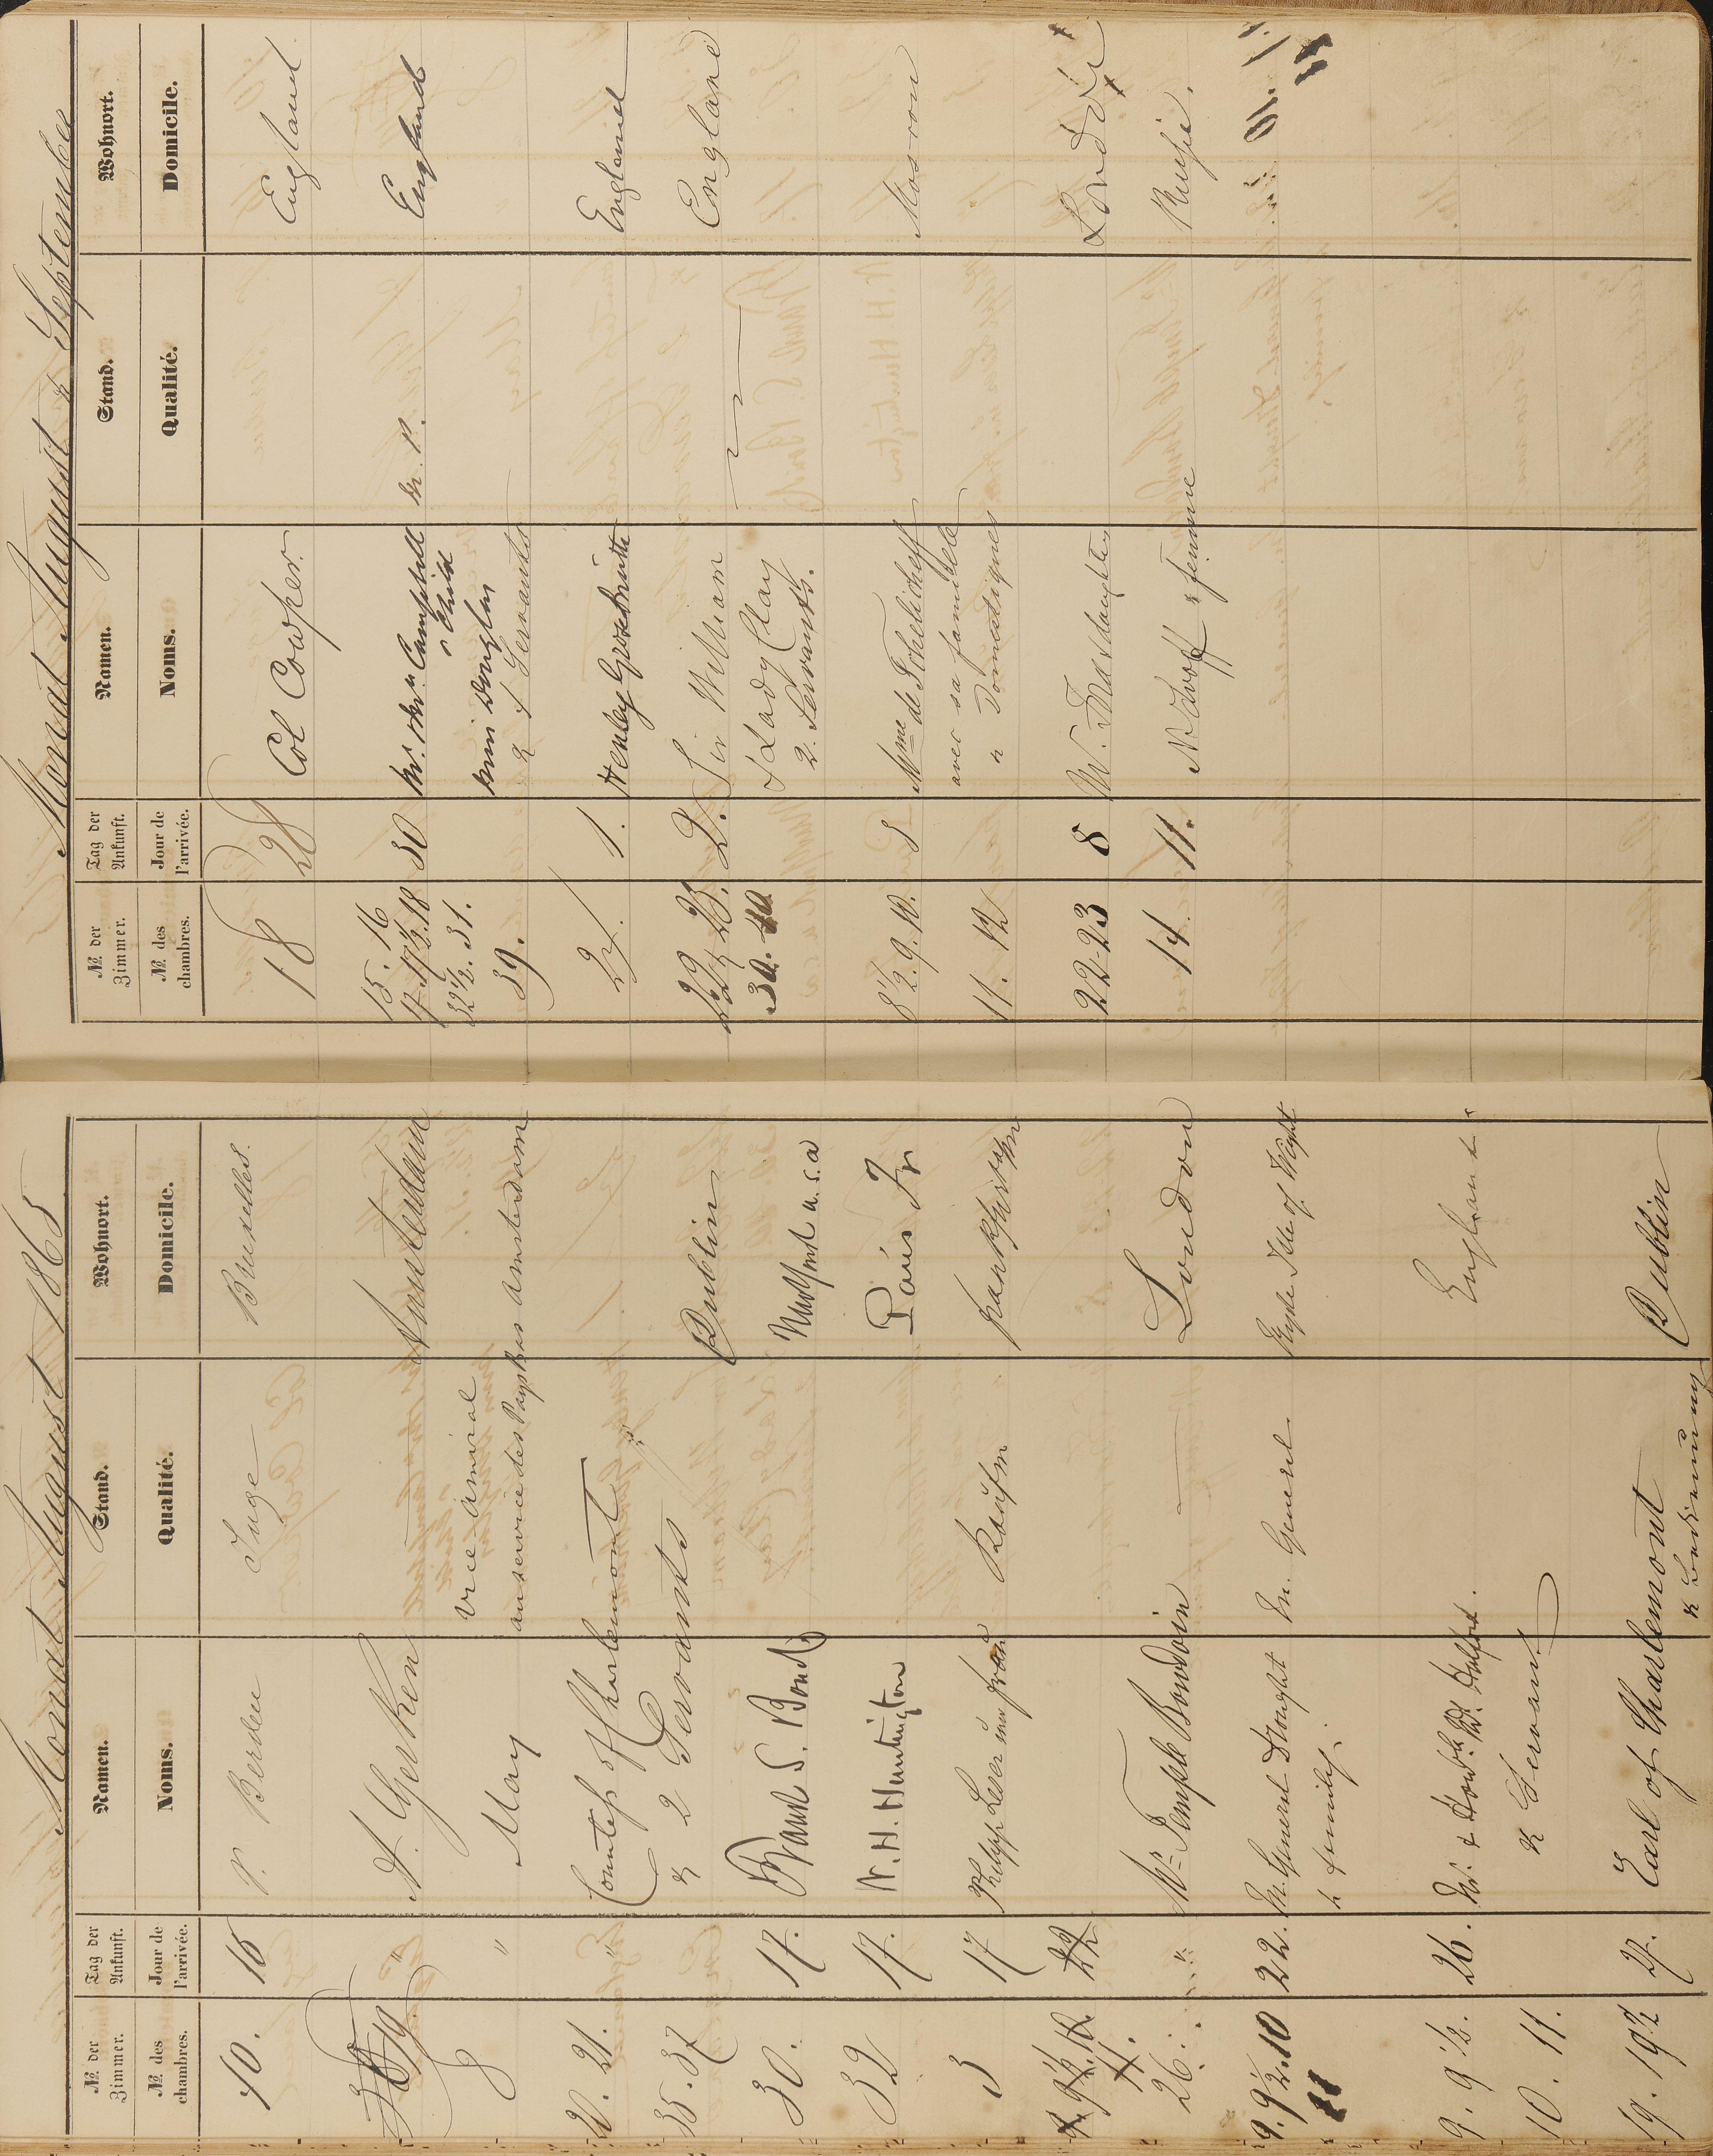 Monat August 1865
№ der Zimmer. Tag der Ankunft. Namen. Stand. Wohnort.
№ des chambres. Jour de l'arrivée. Noms. Qualité. Domicile.
10. 16 P. Berden Juge Bruxelles.
19 " A. Gerken Amsterdam
8 " May Vice amiral
au service des Pays Bas Amsterdam
20. 21. " Countess of Charlemont
35. 37 & 2 Servants Dublin
30. 17. Frank S. Bond New York U.S.A
32 17. N. H. Huntington Paris Fr
3 17 Philipp Lesser und Frau Kaufm Frankfurt a/m
22
11.
26. " Mr Temple Bowdoin — London
9. 9½. 10 22. General & family. General Ryde Isle of Wight
11
9. 9½. 26. England
10. 11. & Servant
19. 19½ 27. Earl of Charlemont Dublin
& Bedienung
Monat August & September
№ der Zimmer. Tag der Ankunft. Namen. Stand. Wohnort.
№ des chambres. Jour de l'arrivée. Noms. Qualité. Domicile.
18 28 Col Cowper England
15. 16 30 Mr. Mrs. Campbell M. P. England
17. 17½. 18 & Child
32½. 31. Miss Douglas
39. & 4 Servants
24. 1. Henley England
22½ 23. 2. Sir William England
30. 40 & Lady Clay
2. Servants.
8½. 9. 10. Mme de Tchelicheff Moscou
avec sa famille
11. 12 " Domestiques
22-23 8 & daughter London
14 11. N Lvoff & femme Russie.